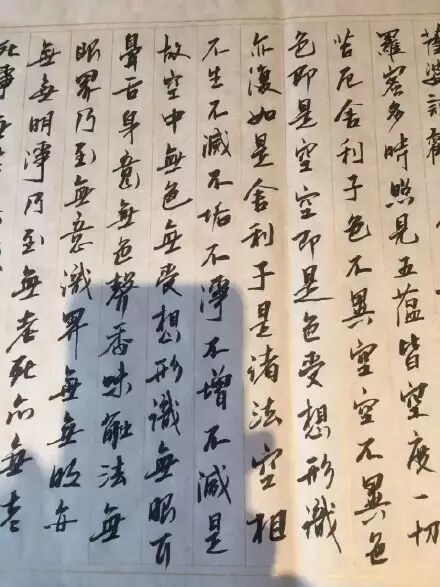 羅蜜多時照見五蘊皆空度一切
苦厄舍利子色不異空空不異色
色即是空空即是色受想形識
亦復如是舍利子是緒法空相
不生不滅不垢不淨不增不減是
故空中無色無受想形識無眼耳
鼻舌身意無色聲香味觸法無
眼界乃至無意識界無無明亦
無無明淨乃至無老死亦無老
死淨無